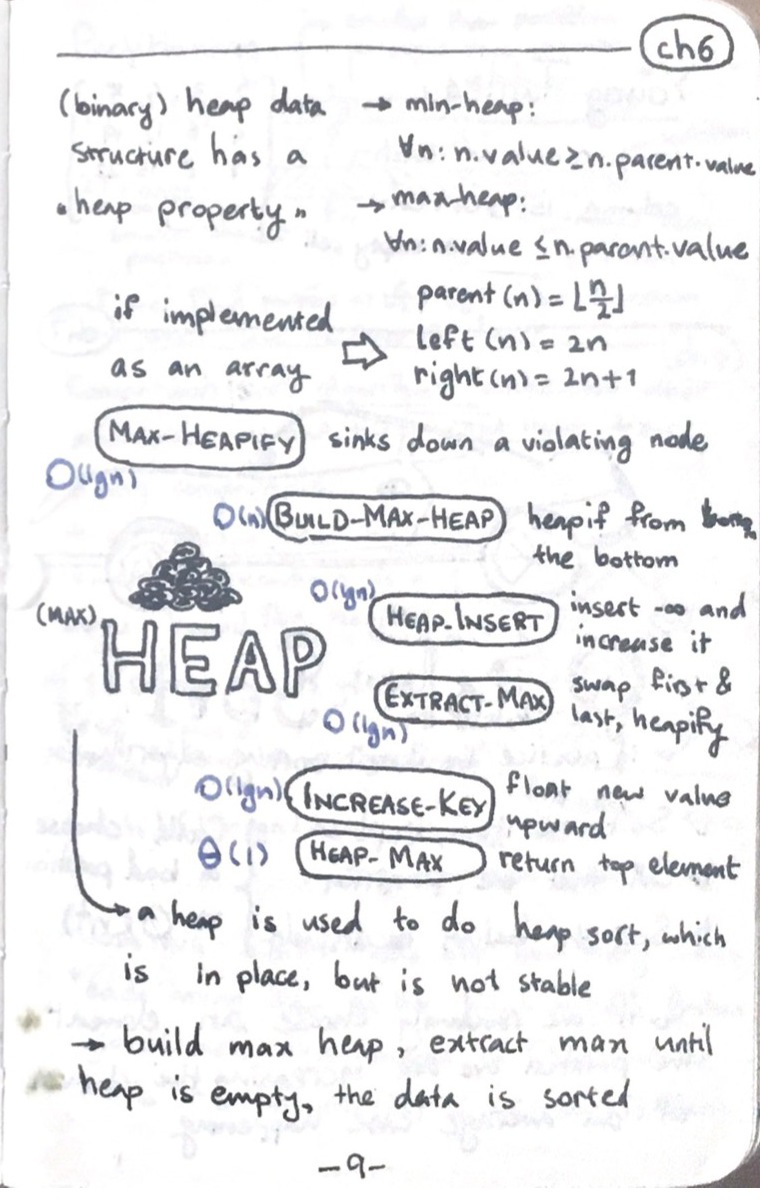 ch6
(binary) heap data → min-heap:
structure has a ∀n: n.value ≥ n.parent.value
"heap property" → max-heap:
∀n: n.value ≤ n.parent.value
if implemented
as an array ⇒
parent (n) = ⌊n/2⌋
left (n) = 2n
right (n) = 2n+1
MAX-HEAPIFY sinks down a violating node
O(lgn)
O(n) BUILD-MAX-HEAP heapif from
the bottom
O(lgn) HEAP-INSERT insert -∞ and
increase it
(MAX) HEAP
EXTRACT-MAX swap first &
last, heapify
O(lgn)
O(lgn) INCREASE-KEY float new value
upward
Θ(1) HEAP-MAX return top element
→ a heap is used to do heap sort, which
is in place, but is not stable
→ build max heap, extract max until
heap is empty, the data is sorted
-9-